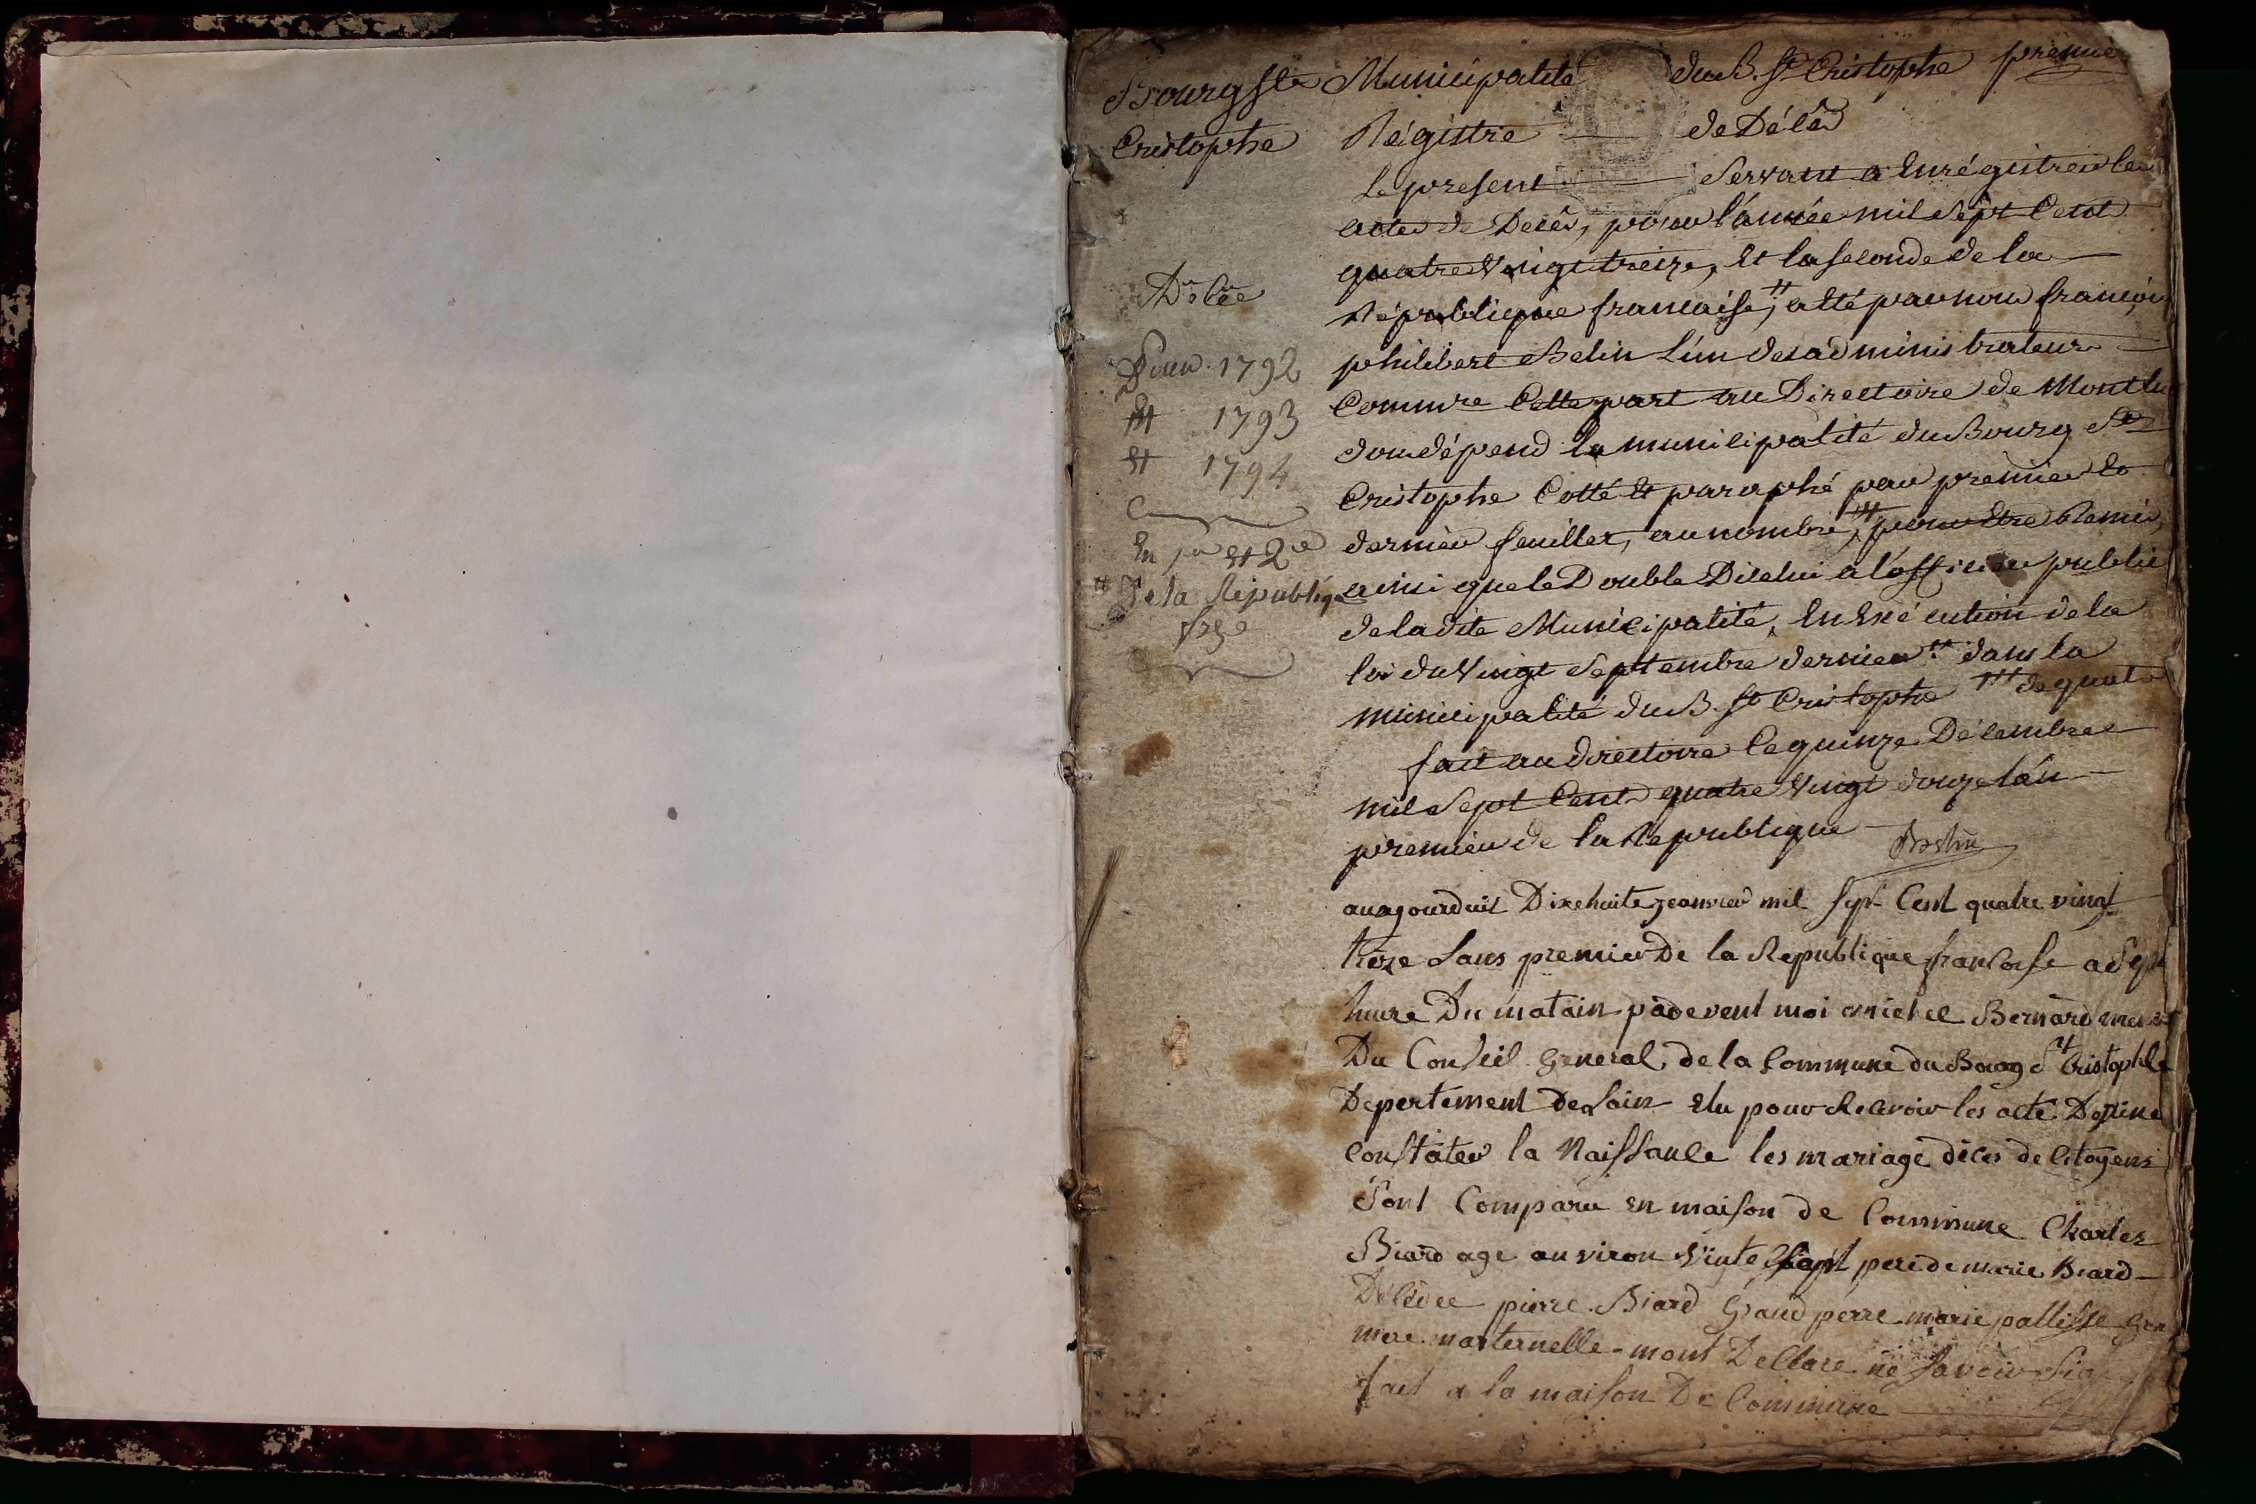 Bourg St
Cristophe
Décès
Pour 1792
Et 1793
Et 1794
En 1er et 2e
de la Républiq
frse
Municipalité du B. St Cristophe premier
Régistre de Décès
Le present Servant a Enrégistrer les
actes de Décès, pour l'année mil Sept Cent
quatre Vingt treize, Et la seconde de la
République francaise, cotté par nous françois
philibert Belin L'un des administrateurs
Commre Cette part au Directoire de Montlu
dou dépend la municipalité du Bourg St
Cristophe Cotté Et paraphé par premier Et
dernier feuillet, au nombre, pour Etre Remis,
ainsi que le Double Dicelui a l'officier public
de la dite Municipalité, En Exécution de la
loi du Vingt Septembre dernier dans la
municipalité du B. St Cristophe de quatre
fait au directoire Ce quinze Décembre
mil Sept Cent quatre Vingt douze l'an
premier de la Republique
auajourduit Dixehuite jeanvier mil sept Cent quatre vingt
treze Lans premier De la Republique francoise a Sept
heure Du matain padevent moi michel Bernard
Du Conseil General de la Commune du Bourg St Cristophle
Depertement De Lain Elu pour Recevoir les acte Destine
Constater la Naissance les mariage déces de Citoyens
Sont Comparu En maison de Commune Charles
Biard age anviron Vinte Sept pere de marie Biard
Décédée pierre Biard Grand perre marie pallisse
mere marternelle mont Declare ne Savoir
fait a la maison De Commune